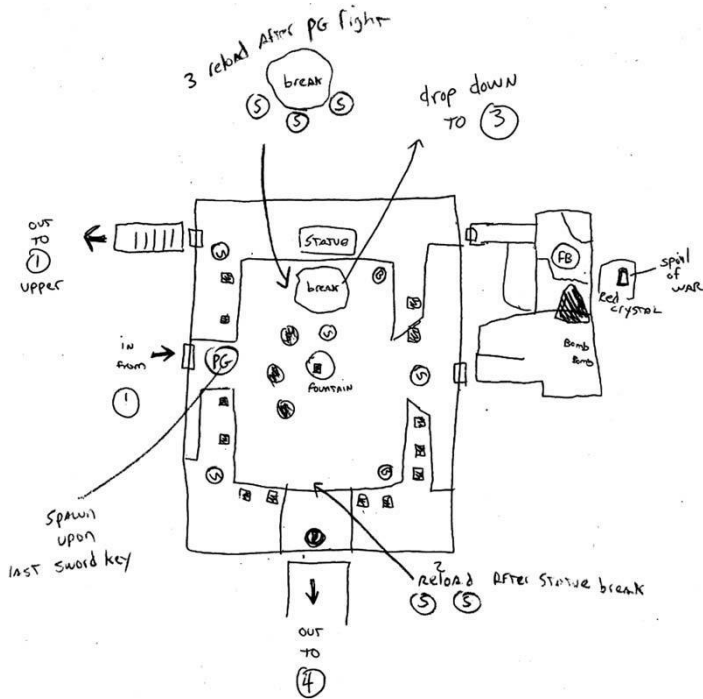 3 reload After PG fight
break
S S S
drop down
TO 3
OUT
TO
1
upper
STATUE
S
break
FB
spoil
of
WAR
Red
CRYSTAL
in
from
1
PG
S
FOUNTAIN
S
Bomb
Bomb
S
Spawn
upon
last sword key
2
reload After Statue break
S S
OUT
TO
4